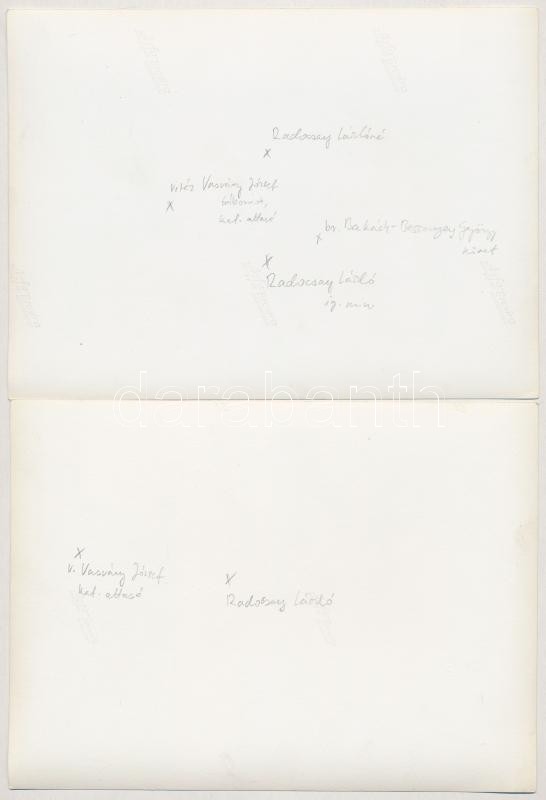 Radocsay Lászlóné
x
vitéz Vasváry József
x
tábornok,
kat. attasé
br. Bakách-Bessenyey György
x
követ
x
Radocsay László
ig. min
darabanth
x
v. Vasváry József
kat. attasé
x
Radocsay László